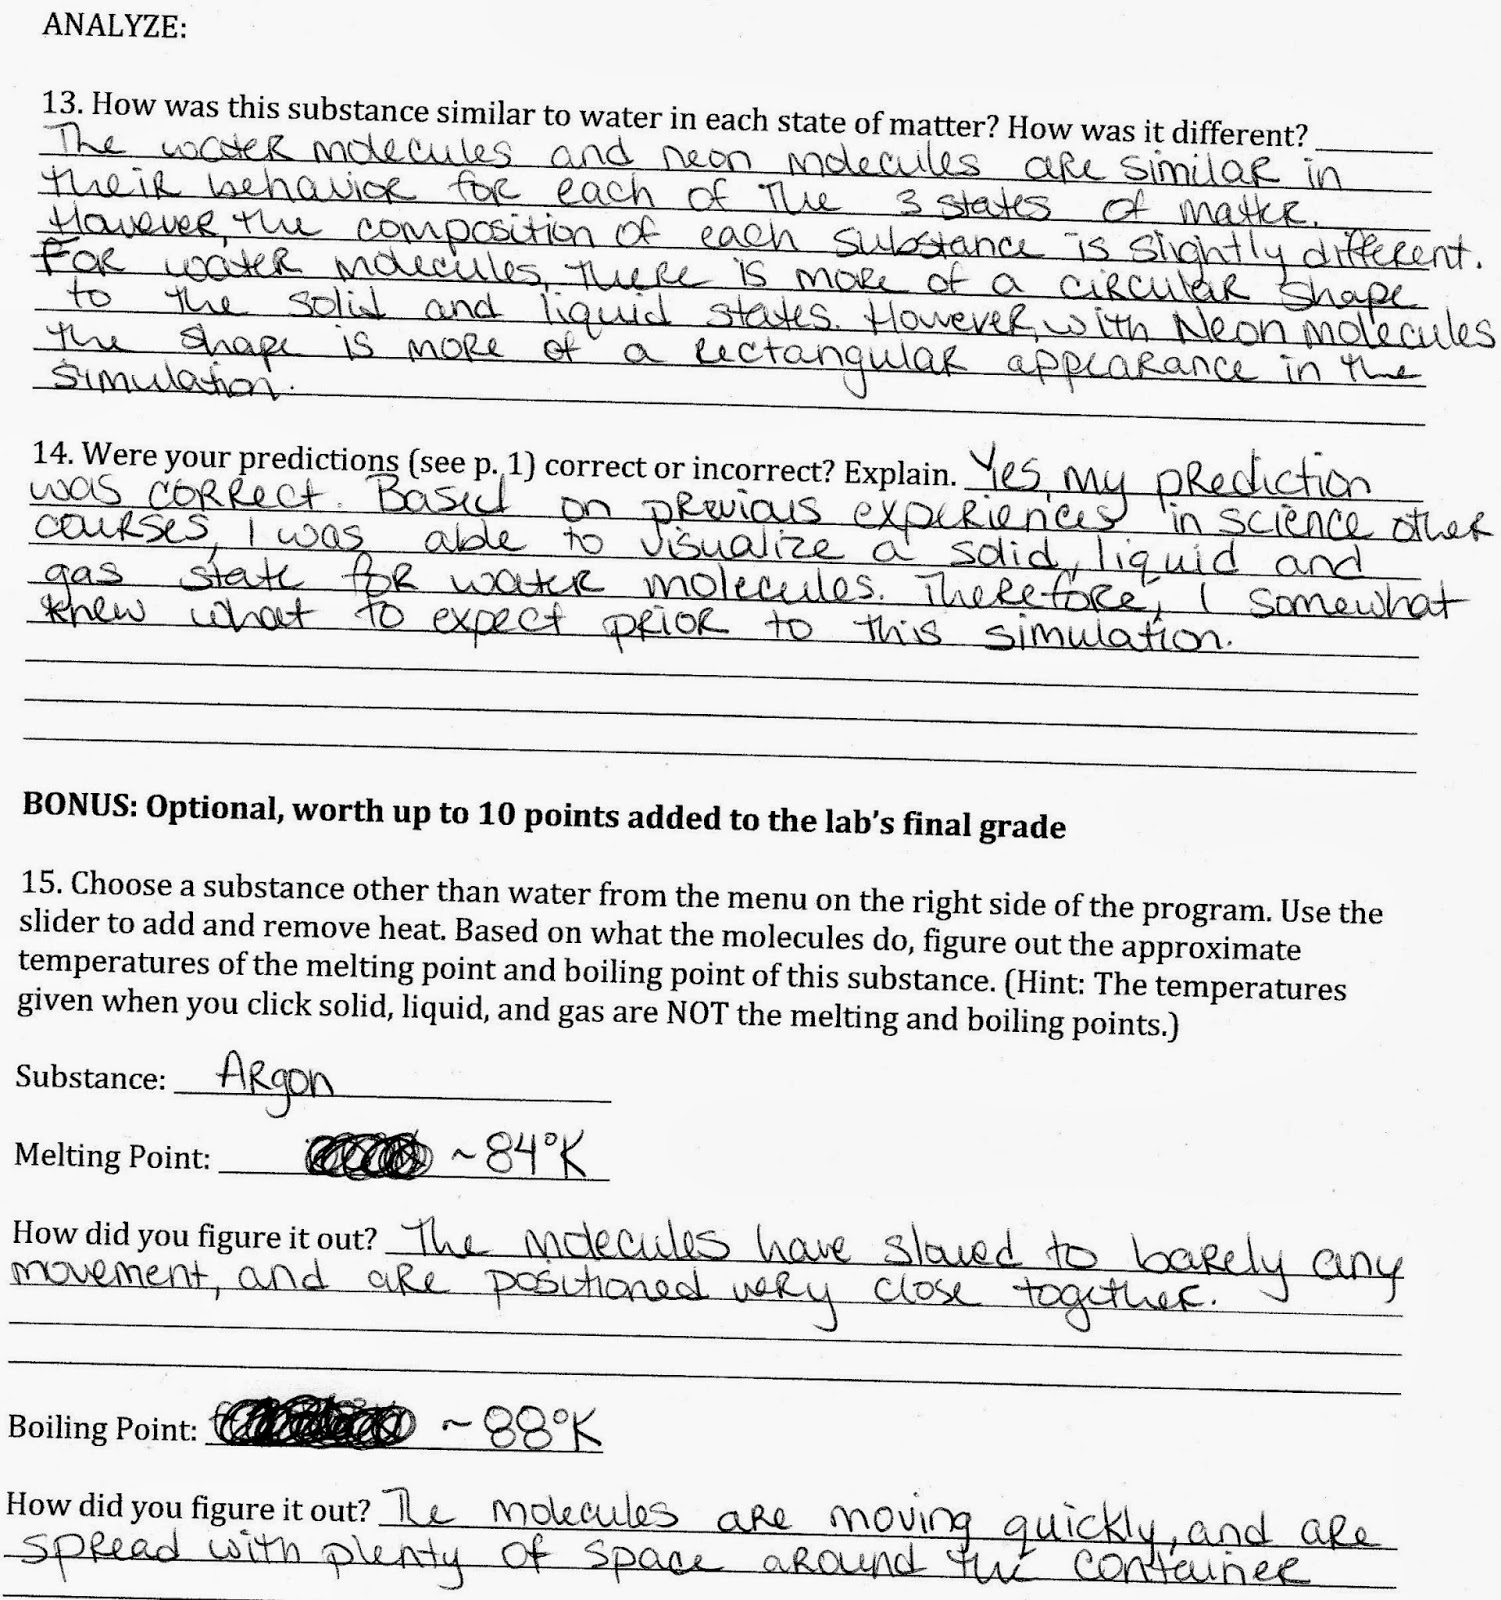 ANALYZE:
13. How was this substance similar to water in each state of matter? How was it different?
The water molecules and neon molecules are similar in
their behavior for each of the 3 states of matter.
However, the composition of each substance is slightly different.
For water molecules, there is more of a circular shape
to the solid and liquid states. However, with Neon molecules
the shape is more of a rectangular appearance in the
simulation.
14. Were your predictions (see p. 1) correct or incorrect? Explain. Yes, my prediction
was correct. Based on previous experiences in science other
courses, I was able to visualize a solid, liquid and
gas state for water molecules. Therefore, I somewhat
knew what to expect prior to this simulation.
BONUS: Optional, worth up to 10 points added to the lab's final grade
15. Choose a substance other than water from the menu on the right side of the program. Use the
slider to add and remove heat. Based on what the molecules do, figure out the approximate
temperatures of the melting point and boiling point of this substance. (Hint: The temperatures
given when you click solid, liquid, and gas are NOT the melting and boiling points.)
Substance: Argon
Melting Point: ~84°K
How did you figure it out? The molecules have slowed to barely any
movement, and are positioned very close together.
Boiling Point: ~88°K
How did you figure it out? The molecules are moving quickly, and are
spread with plenty of space around the container